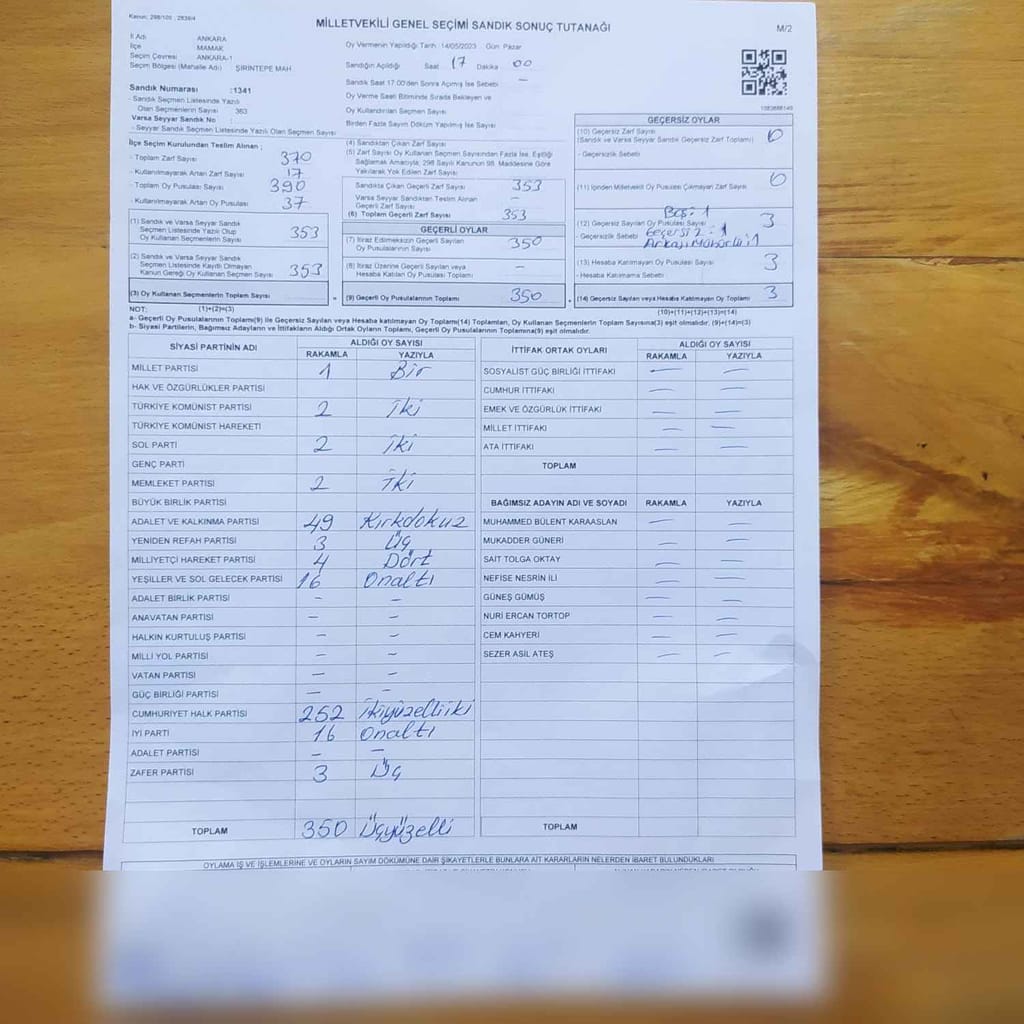 Kanun: 298/105 ; 2839/4
MİLLETVEKİLİ GENEL SEÇİMİ SANDIK SONUÇ TUTANAĞI
M/2
İl Adı ANKARA
İlçe MAMAK
Seçim Çevresi ANKARA-1
Seçim Bölgesi (Mahalle Adı) ŞİRİNTEPE MAH.
Oy Vermenin Yapıldığı Tarih :14/05/2023 Gün: Pazar
Sandığın Açıldığı Saat 17 Dakika 00
Sandık Saat 17:00'den Sonra Açılmış İse Sebebi —
Oy Verme Saati Bitiminde Sırada Bekleyen ve
Oy Kullandırılan Seçmen Sayısı
Birden Fazla Sayım Döküm Yapılmış İse Sayısı
Sandık Numarası :1341
- Sandık Seçmen Listesinde Yazılı
Olan Seçmenlerin Sayısı 363
Varsa Seyyar Sandık No :
- Seyyar Sandık Seçmen Listesinde Yazılı Olan Seçmen Sayısı
İlçe Seçim Kurulundan Teslim Alınan ;
- Toplam Zarf Sayısı 370
- Kullanılmayarak Artan Zarf Sayısı 17
- Toplam Oy Pusulası Sayısı 390
- Kullanılmayarak Artan Oy Pusulası 37
(1) Sandık ve Varsa Seyyar Sandık
Seçmen Listesinde Yazılı Olup
Oy Kullanan Seçmenlerin Sayısı 353
(2) Sandık ve Varsa Seyyar Sandık
Seçmen Listesinde Kayıtlı Olmayan
Kanun Gereği Oy Kullanan Seçmen Sayısı 353
(3) Oy Kullanan Seçmenlerin Toplam Sayısı
(1)+(2)=(3)
(4) Sandıktan Çıkan Zarf Sayısı
(5) Zarf Sayısı Oy Kullanan Seçmen Sayısından Fazla İse, Eşitliği
Sağlamak Amacıyla, 298 Sayılı Kanunun 98. Maddesine Göre
Yakılarak Yok Edilen Zarf Sayısı
Sandıkta Çıkan Geçerli Zarf Sayısı 353
Varsa Seyyar Sandıktan Teslim Alınan
Geçerli Zarf Sayısı —
(6) Toplam Geçerli Zarf Sayısı 353
GEÇERLİ OYLAR
(7) İtiraz Edilmeksizin Geçerli Sayılan
Oy Pusulalarının Toplamı 350
(8) İtiraz Üzerine Geçerli Sayılan veya
Hesaba Katılan Oy Pusulası Toplamı —
(9) Geçerli Oy Pusulalarının Toplamı 350
GEÇERSİZ OYLAR
(10) Geçersiz Zarf Sayısı
(Sandık ve Varsa Seyyar Sandık Geçersiz Zarf Toplamı) 0
- Geçersizlik Sebebi
(11) İçinden Milletvekili Oy Pusulası Çıkmayan Zarf Sayısı 0
Boş: 1
(12) Geçersiz Sayılan Oy Pusulası Sayısı 3
- Geçersizlik Sebebi Geçersiz : 1
Arkası Mühürlü:1
(13) Hesaba Katılmayan Oy Pusulası Sayısı 3
- Hesaba Katılmama Sebebi
(14) Geçersiz Sayılan veya Hesaba Katılmayan Oy Toplamı 3
(10)+(11)+(12)+(13)=(14)
NOT:
a- Geçerli Oy Pusulalarının Toplamı(9) ile Geçersiz veya Hesaba katılmayan Oy Toplamı(14) Toplamları, Oy Kullanan Seçmenlerin Toplam Sayısına(3) eşit olmalıdır. (9)+(14)=(3)
b- Siyasi Partilerin, Bağımsız Adayların ve İttifakların Aldığı Ortak Oyların Toplamı, Geçerli Oy Pusulalarının Toplamına(9) eşit olmalıdır.
SİYASİ PARTİNİN ADI ALDIĞI OY SAYISI
RAKAMLA YAZIYLA
MİLLET PARTİSİ 1 Bir
HAK VE ÖZGÜRLÜKLER PARTİSİ
TÜRKİYE KOMÜNİST PARTİSİ 2 İki
TÜRKİYE KOMÜNİST HAREKETİ
SOL PARTİ 2 İki
GENÇ PARTİ
MEMLEKET PARTİSİ 2 İki
BÜYÜK BİRLİK PARTİSİ
ADALET VE KALKINMA PARTİSİ 49 Kırkdokuz
YENİDEN REFAH PARTİSİ 3 Üç
MİLLİYETÇİ HAREKET PARTİSİ 4 Dört
YEŞİLLER VE SOL GELECEK PARTİSİ 16 Onaltı
ADALET BİRLİK PARTİSİ – –
ANAVATAN PARTİSİ – –
HALKIN KURTULUŞ PARTİSİ – –
MİLLİ YOL PARTİSİ – –
VATAN PARTİSİ – –
GÜÇ BİRLİĞİ PARTİSİ – –
CUMHURİYET HALK PARTİSİ 252 İkiyüzelliiki
İYİ PARTİ 16 Onaltı
ADALET PARTİSİ – –
ZAFER PARTİSİ 3 Üç
TOPLAM 350 Üçyüzelli
İTTİFAK ORTAK OYLARI ALDIĞI OY SAYISI
RAKAMLA YAZIYLA
SOSYALİST GÜÇ BİRLİĞİ İTTİFAKI — —
CUMHUR İTTİFAKI — —
EMEK VE ÖZGÜRLÜK İTTİFAKI — —
MİLLET İTTİFAKI — —
ATA İTTİFAKI — —
TOPLAM
BAĞIMSIZ ADAYIN ADI VE SOYADI RAKAMLA YAZIYLA
MUHAMMED BÜLENT KARAASLAN — —
MUKADDER GÜNERİ — —
SAİT TOLGA OKTAY — —
NEFİSE NESRİN İLİ — —
GÜNEŞ GÜMÜŞ — —
NURİ ERCAN TORTOP — —
CEM KAHYERİ — —
SEZER ASİL ATEŞ — —
TOPLAM
OYLAMA İŞ VE İŞLEMLERİNE VE OYLARIN SAYIM DÖKÜMÜNE DAİR ŞİKAYETLERLE BUNLARA AİT KARARLARIN NELERDEN İBARET BULUNDUKLARI